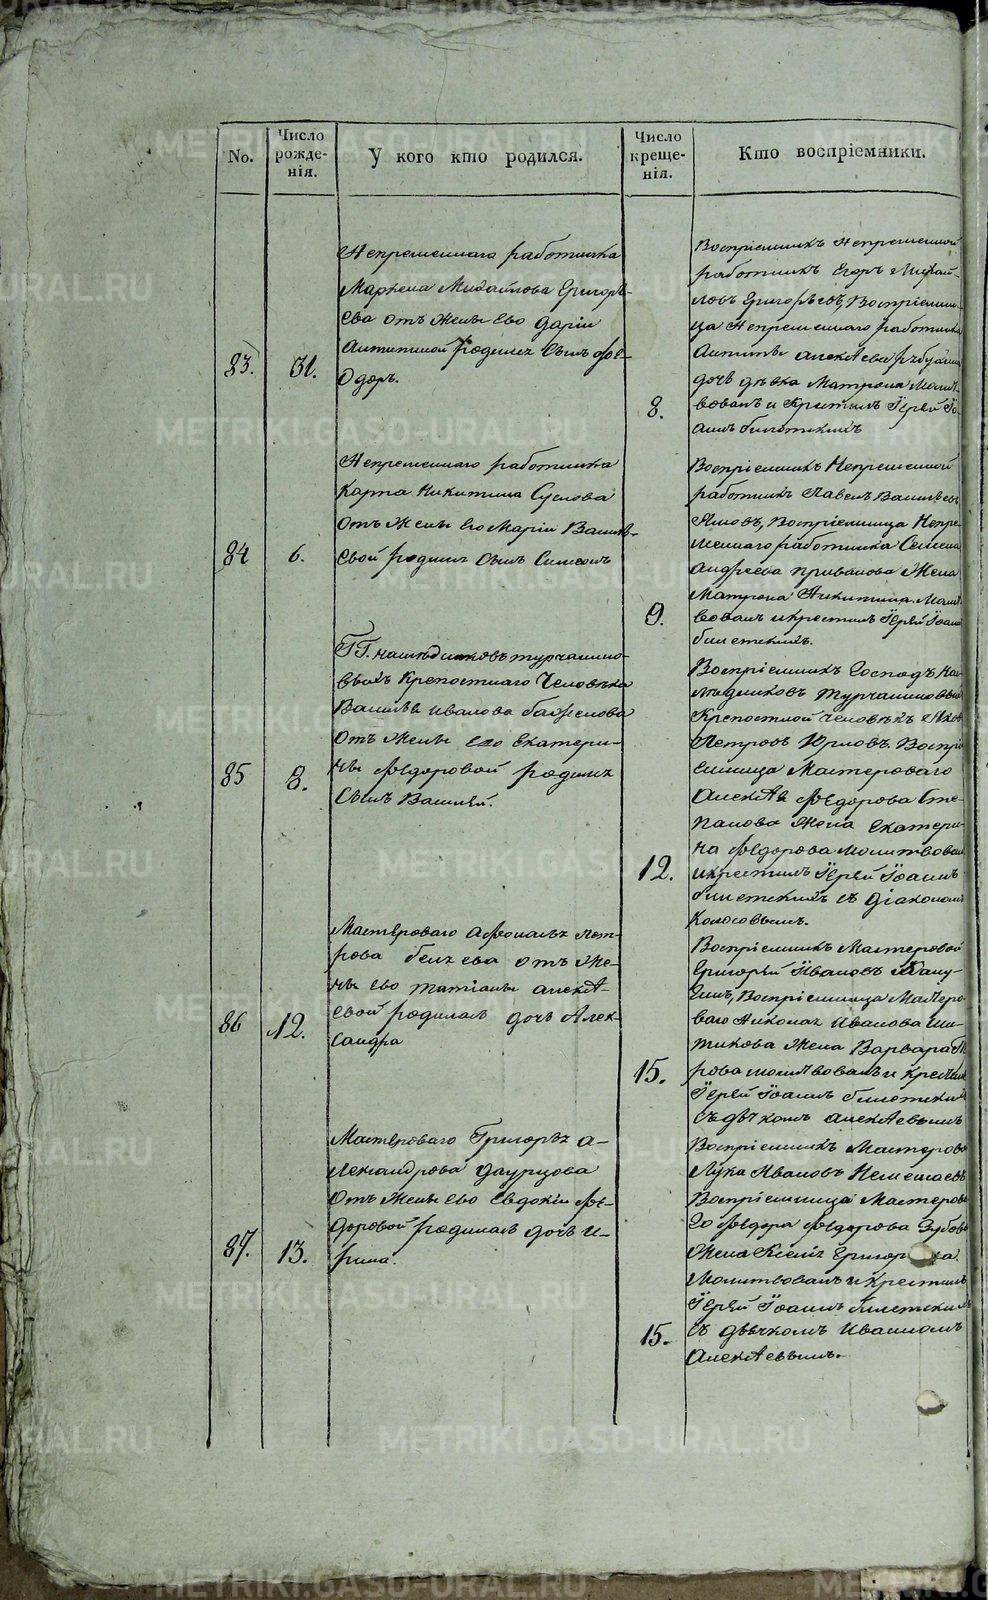 No.
Число рожде-
нія.
У кого кто родился.
Число креще-
нія.
Кто воспріемники.
83.
31.
Непременнаго работника
Михайлова Григорь-
ева отъ жены ево Дарiи
Антиповой родился сынъ Фе-
одоръ.
8.
Воспрiемникъ Непременной
работникъ Егоръ Михай-
ловъ Григорьевъ, Воспрiемни-
ца Непременнаго работника
Антипы Алексѣева
дочь дѣвка Матрона Молит-
вовалъ и Крестилъ Iерей Iо-
аннъ
84
6.
Непременнаго работника
Карпа Никитина Суслова
отъ жены его Марiи Василь-
евой родился сынъ Симеонъ
9.
Воспрiемникъ Непременной
работникъ Павелъ Васильевъ
Воспрiемница Непре-
меннаго работника Семена
Андреева Привалова жена
Матрона Никитина. Молит-
вовалъ и крестилъ Iерей Iоаннъ
85
8.
ГГ. наследниковъ Турчанино-
выхъ крепостнаго человѣка
Василья Иванова Баженова
отъ жены ево Екатери-
ны Федоровой родился
сынъ Василей.
12.
Воспрiемникъ Господъ На-
следниковъ Турчаниновыхъ
Крепостной человѣкъ Яковъ
Петровъ Юрловъ. Воспрi-
емница Мастероваго
Алексѣя Федорова Сте-
панова жена Екатери-
на Федорова Молитвовалъ
и крестилъ Iерей Iоаннъ
съ дiакономъ
Колосовымъ.
86
12.
Мастероваго Афонасья Пет-
рова отъ же-
ны ево Татiаны Алексѣ-
евой родилась дочь Алек-
сандра
15.
Воспрiемникъ Мастеровой
Григорей Ивановъ
Воспрiемница Мастеро-
ваго Николая Иванова
жена Варвара
молитвовалъ и крестилъ
Iерей Iоаннъ
съ дьячкомъ Алексѣевымъ
87.
13.
Мастероваго Григорья А-
лександрова Даурцова
отъ жены ево Евдокiи Фе-
доровой родилась дочь И-
рина.
15.
Воспрiемникъ Мастеровой
Лука Ивановъ
Воспрiемница Мастерова-
го Федора Федорова
жена
Молитвовалъ и крестилъ
Iерей Iоаннъ
съ дьячкомъ Иваномъ
Алексѣевымъ.
METRIKI.GASO-URAL.RU